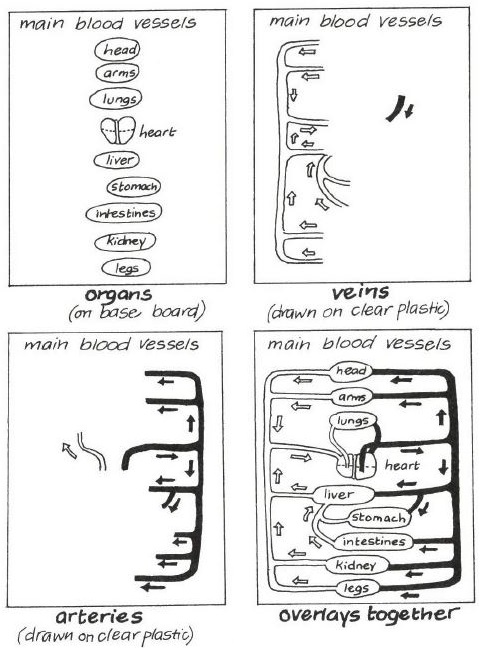 main blood vessels
head
arms
lungs
heart
liver
stomach
intestines
kidney
legs
organs
(on base board)
main blood vessels
veins
(drawn on clear plastic)
main blood vessels
arteries
(drawn on clear plastic)
main blood vessels
head
arms
lungs
heart
liver
stomach
intestines
kidney
legs
overlays together